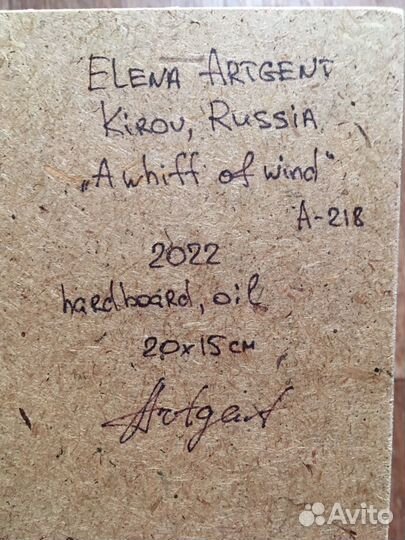 ELENA ARTGENT
KIROV, RUSSIA
„A whiff of wind"
A-218
2022
hardboard, oil
20x15см
Artgent
Avito